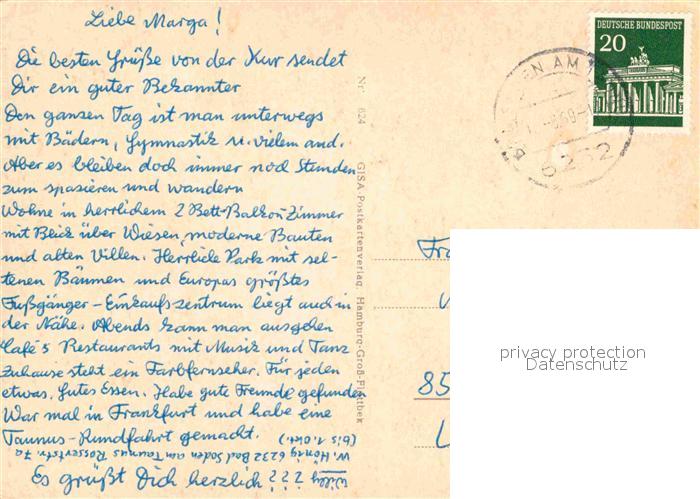 Liebe Marga!
Die besten Grüße von der Kur sendet
Dir ein guter Bekannter
Den ganzen Tag ist man unterwegs
mit Bädern, Gymnastik u. vielem and.
Aber es bleiben doch immer noch Stunden
zum spazieren und wandern
Wohne in herrlichem 2 Bett-Balkon-Zimmer
mit Blick über Wiesen, moderne Bauten
und alten Villen. Herrliche Park mit sel-
tenen Bäumen und Europas größtes
Fußgänger-Einkaufszentrum liegt auch in
der Nähe. Abends kann man ausgehen
Café's Restaurants mit Musik und Tanz
Zuhause steht ein Farbfernseher. Für jeden
etwas. Gutes Essen. Habe gute Freunde gefunden
War mal in Frankfurt und habe eine
Taunus-Rundfahrt gemacht.
(bis 1. Okt.)
W. Hönig 6232 Bad Soden am Taunus Rossertstr. 7a
Es grüßt Dich herzlich ???
Willy
Nr. 624 GISA-Postkartenverlag, Hamburg-Groß-Flottbek
DEUTSCHE BUNDESPOST
20
EN AM
6232
85
privacy protection
Datenschutz